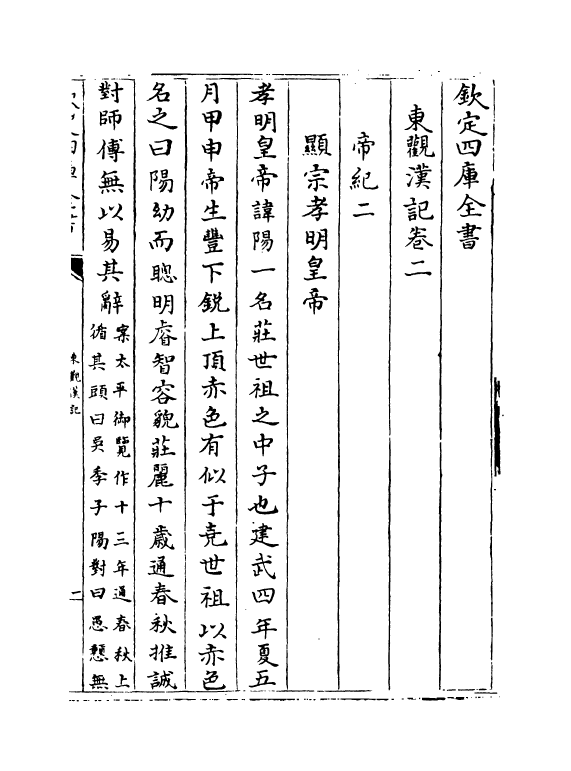 欽定四庫全書
東觀漢記卷二
帝紀二
顯宗孝明皇帝
孝明皇帝諱陽一名莊世祖之中子也建武四年夏五
月甲申帝生豐下銳上頂赤色有似于堯世祖以赤色
名之曰陽幼而聰明睿智容貌莊麗十歲通春秋推誠
對師傅無以易其辭
案太平御覽作十三年通春秋上
循其頭曰吳季子陽對曰愚戇無
東觀漢記